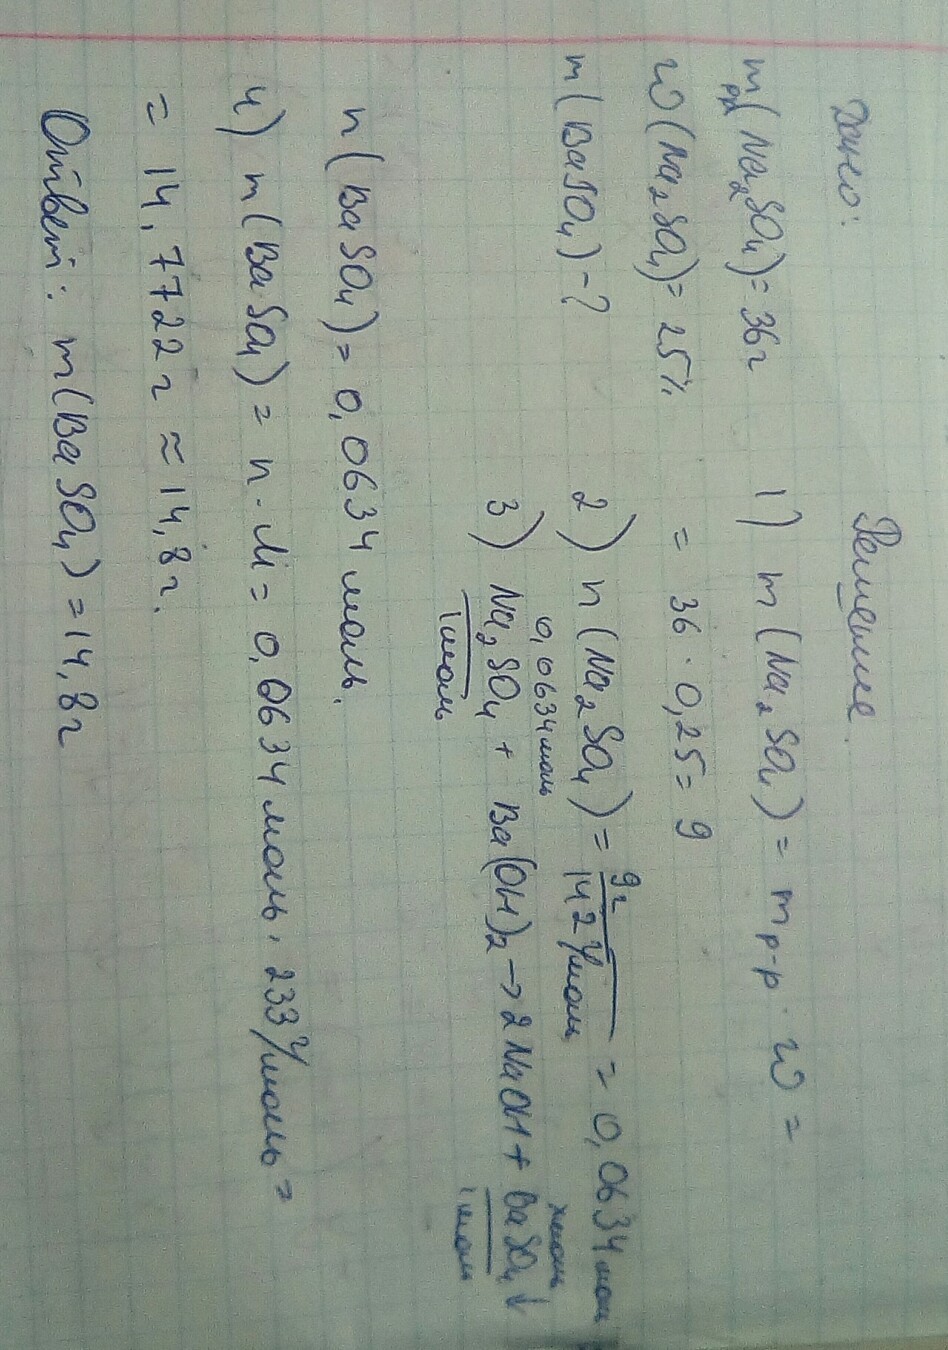 Дано:
mрр(Na₂SO₄) = 36г
w(Na₂SO₄) = 25%
m(BaSO₄) - ?
Решение.
1) m(Na₂SO₄) = mр-р · w =
= 36 · 0,25 = 9
2) n(Na₂SO₄) = 9г / 142 г/моль = 0,0634 моль
0,0634 моль xмоль
3) Na₂SO₄ + Ba(OH)₂ → 2NaOH + BaSO₄↓
1 моль 1 моль
n(BaSO₄) = 0,0634 моль.
4) m(BaSO₄) = n · M = 0,0634 моль · 233 г/моль =
= 14,7722 г ≈ 14,8 г.
Ответ: m(BaSO₄) = 14,8 г